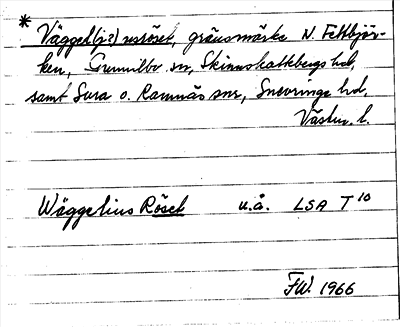 * Väggel(j?)usröset, gränsmärke N. Fettbjör-
ken, Gunnilbo sn, Skinnskattebergs hd,
samt Sura o. Ramnäs snr, Snevringe hd,
Västm. l.
Wäggelius Röset u.å. LSA T 10
FW. 1966